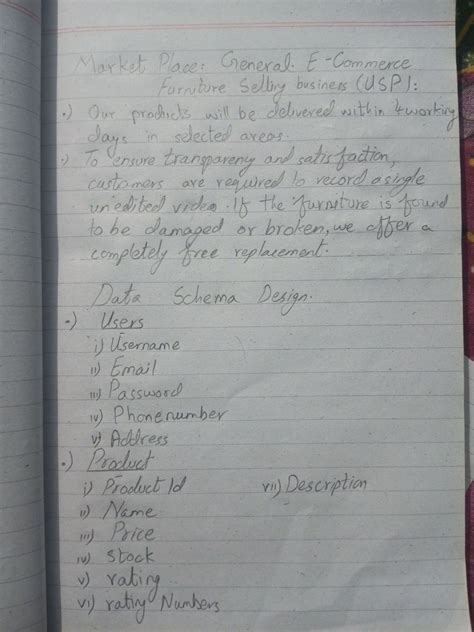 Market Place: General E-Commerce
Furniture Selling business (USP):
•) Our products will be delivered within 4 working
days in selected areas.
•) To ensure transparency and satisfaction,
customers are required to record a single
unedited video. If the furniture is found
to be damaged or broken, we offer a
completely free replacement.
Data Schema Design.
•) Users
i) Username
ii) Email
iii) Password
iv) Phonenumber
v) Address
•) Product
i) Product Id vii) Description
ii) Name
iii) Price
iv) stock
v) rating
vi) rating Numbers